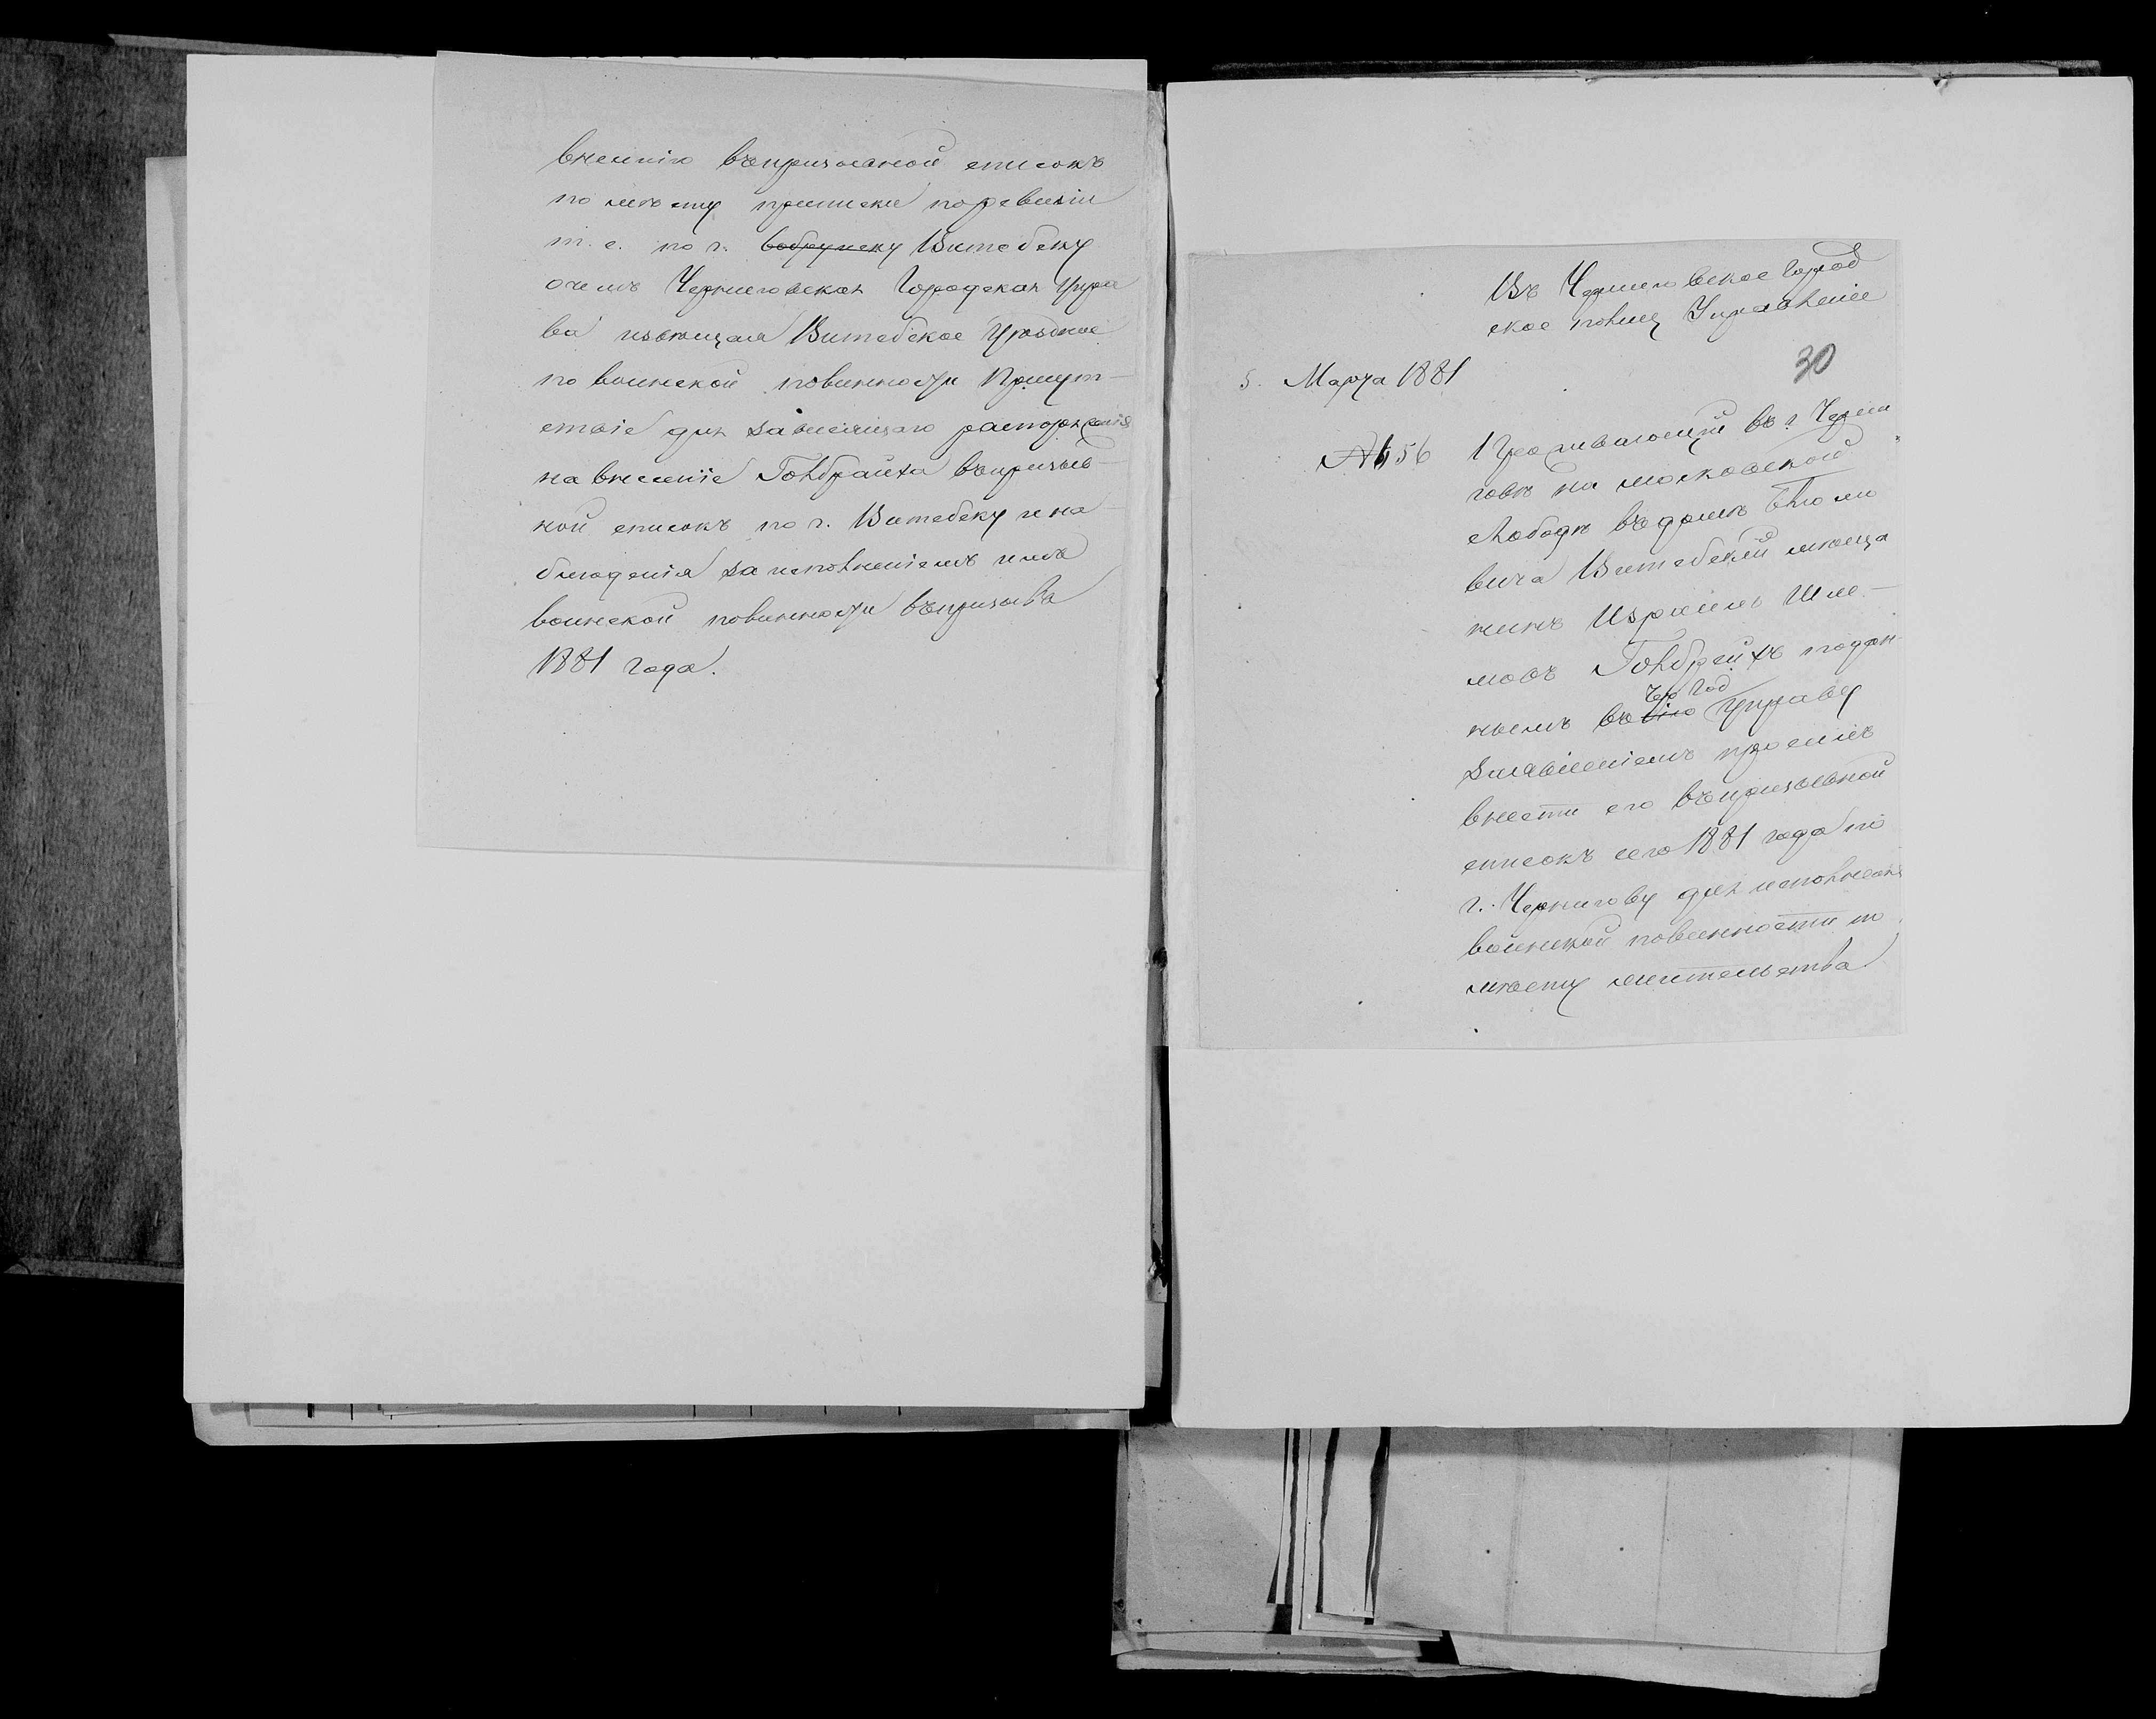 внесенію въ призывной списокъ
по мѣсту приписки по ревизіи
т. е. по г. Бобруйску Витебску
о чемъ Черниговская Городская Упра
ва извѣщая Витебское Уѣздное
по воинской повинности Присут-
ствіе для зависящаго распоряженія
на внесеніе Гольбрайха въ призыв-
ной списокъ по г. Витебску и на-
блюденія за исполненіемъ имъ
воинской повинности въ призывъ
1881 года.
Въ Черниговское Город
ское полиц Управленіе
30
5. Марта 1881
№ 56
Проживающій въ г. Черни
говѣ на московской
слободѣ въ домѣ
вича Витебскій мѣща
нинъ Израиль
мовъ Гольбрайхъ подан
нымъ въ сію Чер Год Управу
заявленіемъ проситъ
внести его въ призывной
списокъ сего 1881 года по
г. Чернигову для исполненія
воинской повинности по
мѣсту жительства